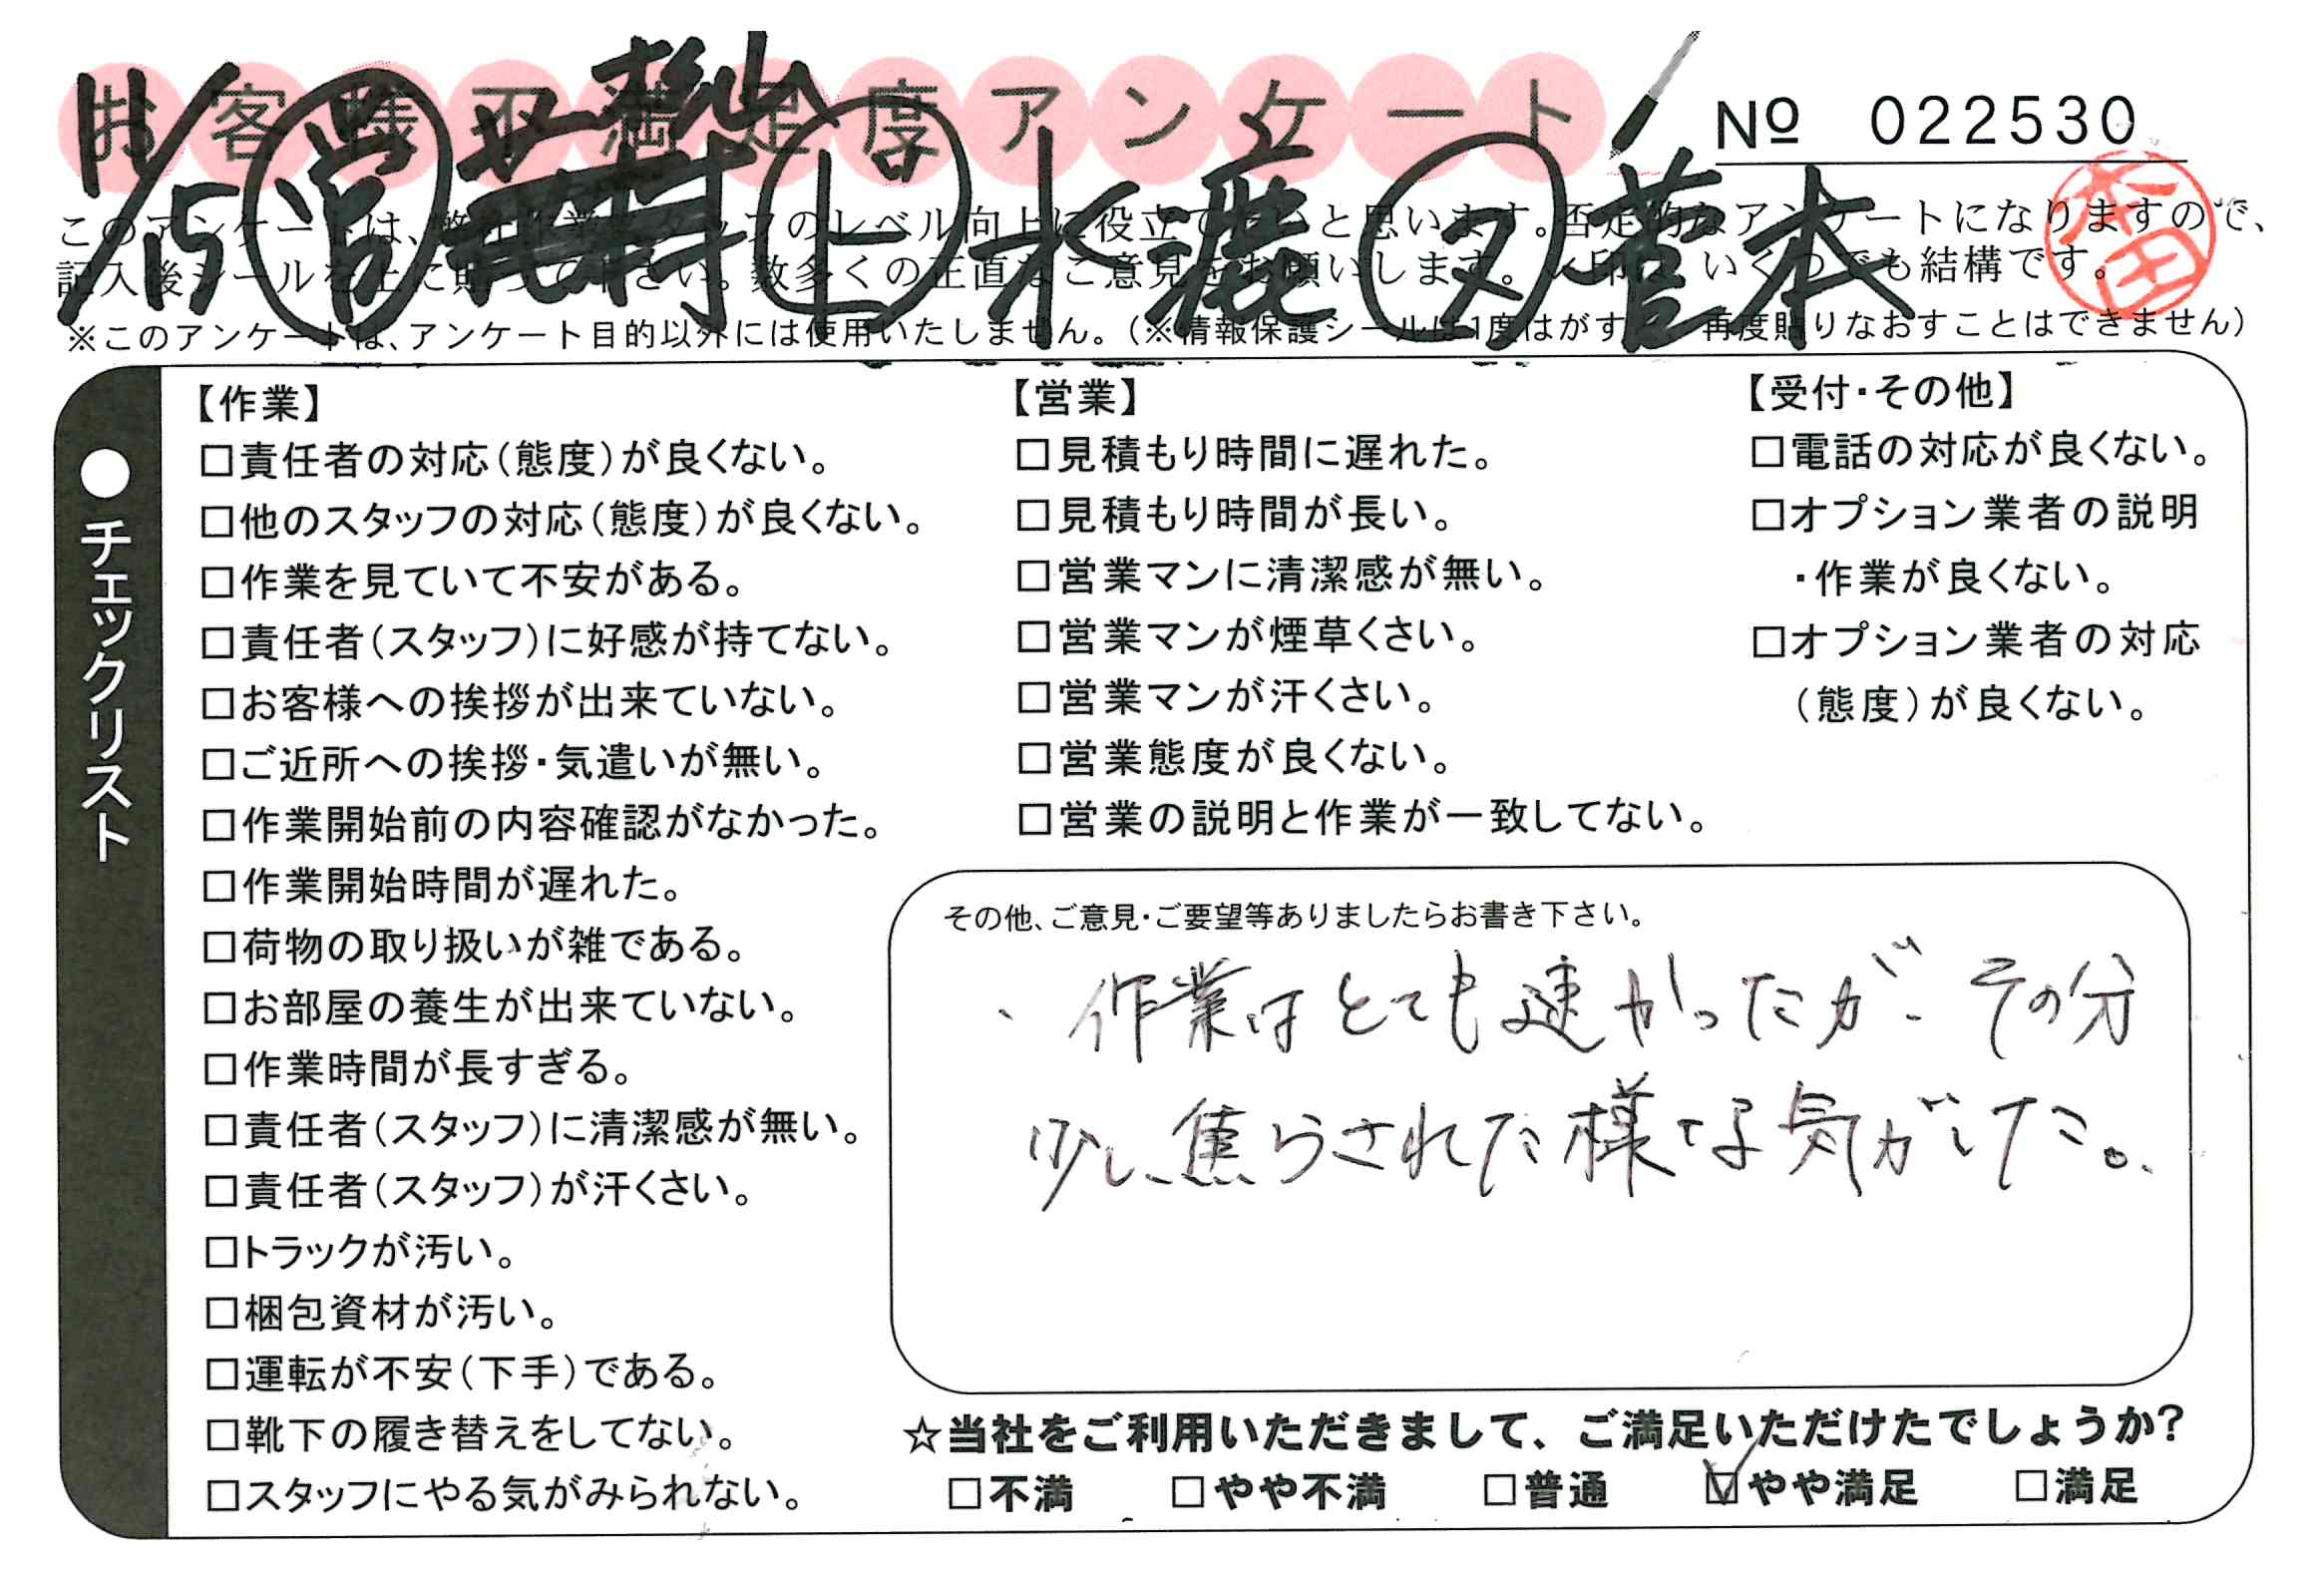 お客様不満足度アンケート
№ 022530
11/15 営 上 水漉 ヌ 菅本
このアンケートは、弊社作業スタッフのレベル向上に役立て と思います。否定的なアンケートになりますので、
記入後シールを上に貼って下さい。数多くの正直なご意見をお願いします。 印は いくつでも結構です。
※このアンケートは、アンケート目的以外には使用いたしません。(※情報保護シールは1度はがす 再度貼りなおすことはできません)
本田
●チェックリスト
【作業】
□責任者の対応(態度)が良くない。
□他のスタッフの対応(態度)が良くない。
□作業を見ていて不安がある。
□責任者(スタッフ)に好感が持てない。
□お客様への挨拶が出来ていない。
□ご近所への挨拶・気遣いが無い。
□作業開始前の内容確認がなかった。
□作業開始時間が遅れた。
□荷物の取り扱いが雑である。
□お部屋の養生が出来ていない。
□作業時間が長すぎる。
□責任者(スタッフ)に清潔感が無い。
□責任者(スタッフ)が汗くさい。
□トラックが汚い。
□梱包資材が汚い。
□運転が不安(下手)である。
□靴下の履き替えをしてない。
□スタッフにやる気がみられない。
【営業】
□見積もり時間に遅れた。
□見積もり時間が長い。
□営業マンに清潔感が無い。
□営業マンが煙草くさい。
□営業マンが汗くさい。
□営業態度が良くない。
□営業の説明と作業が一致してない。
【受付・その他】
□電話の対応が良くない。
□オプション業者の説明
・作業が良くない。
□オプション業者の対応
(態度)が良くない。
その他、ご意見・ご要望等ありましたらお書き下さい。
、作業はとても速かったが、その分
少し焦らされた様な気がした。
☆当社をご利用いただきまして、ご満足いただけたでしょうか?
□不満 □やや不満 □普通 ☑やや満足 □満足